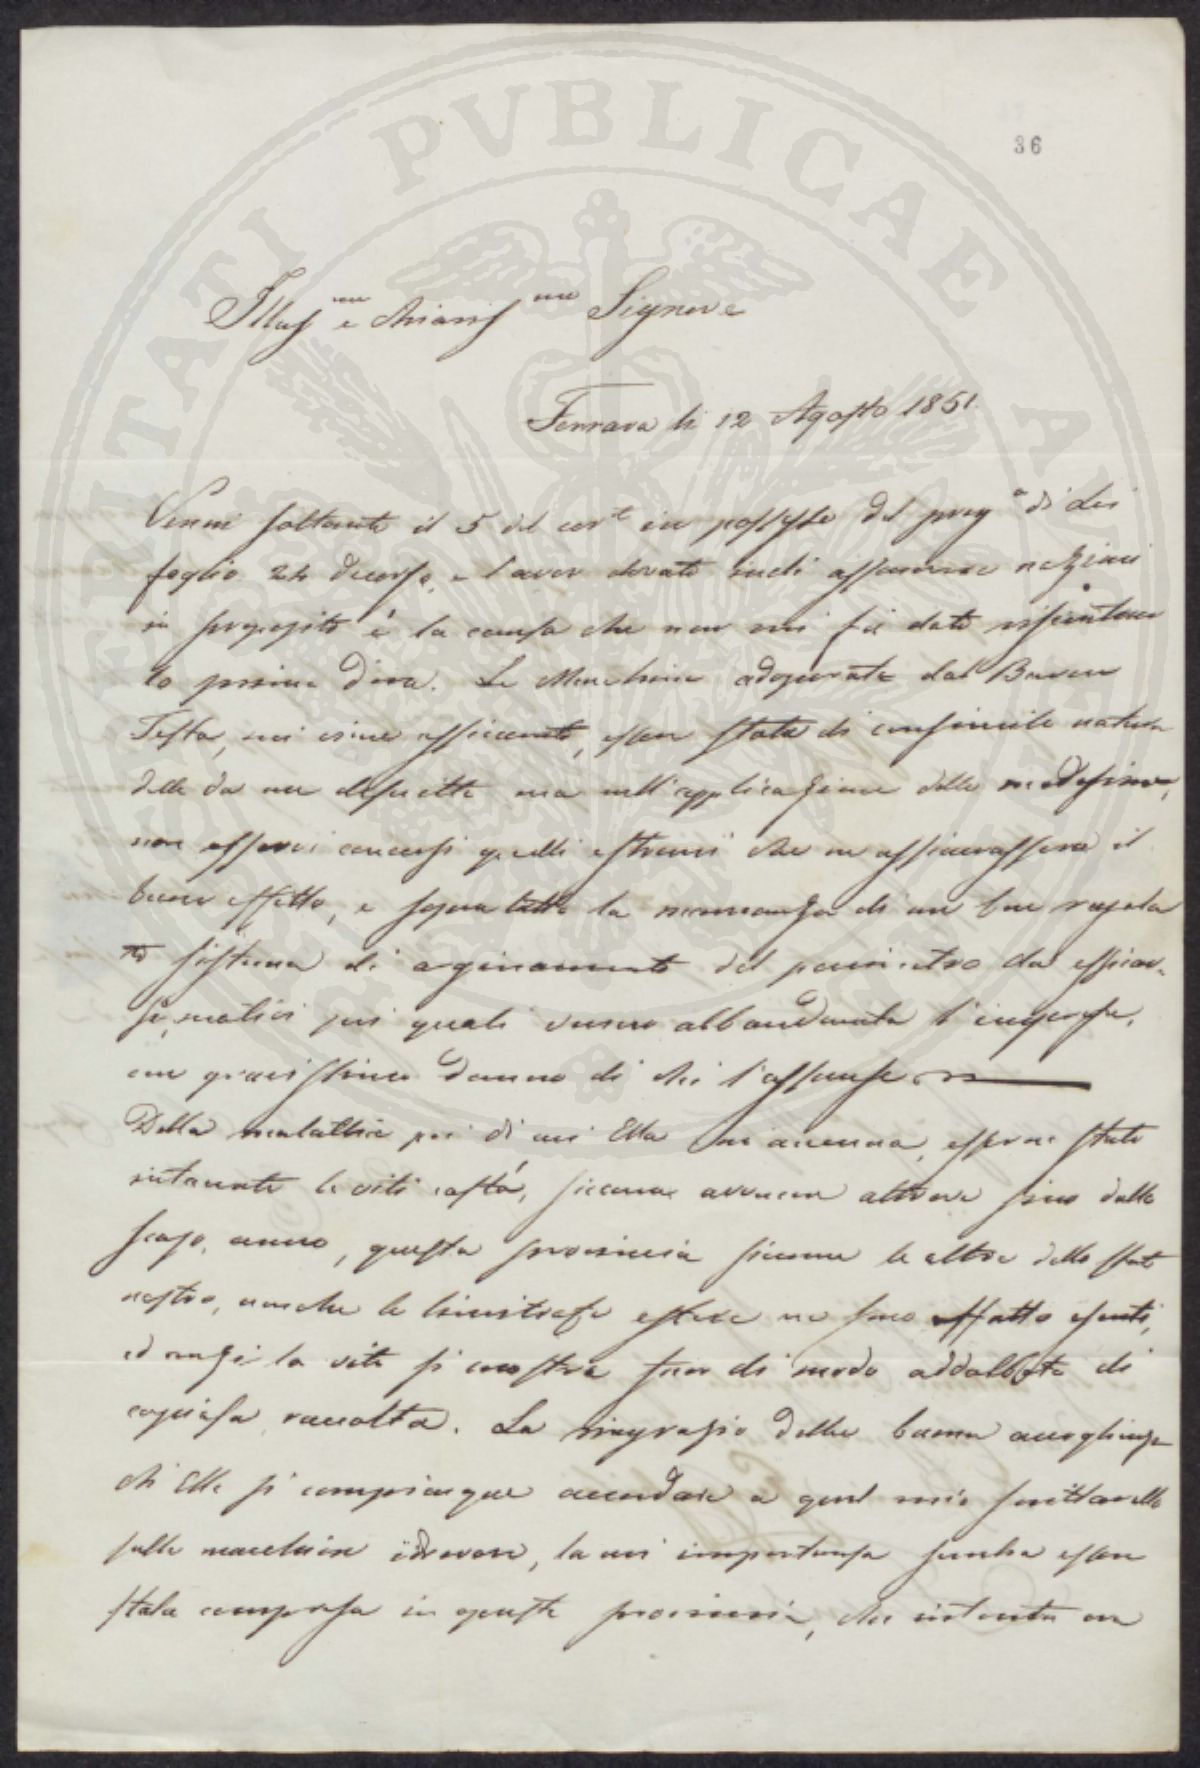 36
Illus.mo e chiaris.mo Signore
Ferrara li 12 Agosto 1851.
Venni soltanto il 5 del cor.te in possesso del preg.o di Lei
foglio 24 decorso, e l'aver dovuto indi assumere nozioni
in proposito è la causa che non mi fu dato
lo prima d'ora. Le Macchine adoperate dal Baron
Testa, mi viene assicurato, esser state di consimile natura
delle da me descritte ma nell'applicazione delle medesime,
non essersi concessi quelli estremi che ne assicurassero il
buon effetto, e sopra tutto la mancanza di un ben regola
to sistema di arginamento del perimetro da essicar-
si, motivi pei quali venne abbandonata l'impresa,
con gravissimo danno di chi l'assunse.
Della malattia poi di cui Ella mi accenna, essere state
intaccate le viti costà, siccome avvenne altrove sino dallo
scorso anno, questa provincia siccome le altre dello stato
nostro, nonché le limitrofe estere ne sono affatto esenti,
ed anzi la vite si mostra fuor di modo addobbata di
copiosa raccolta. La ringrazio della buona accoglienza
che Ella si compiacque accordare a quel mio scrittarello
sulle macchine idrovore, la cui importanza sembra esser
stata compresa in questa provincia, che